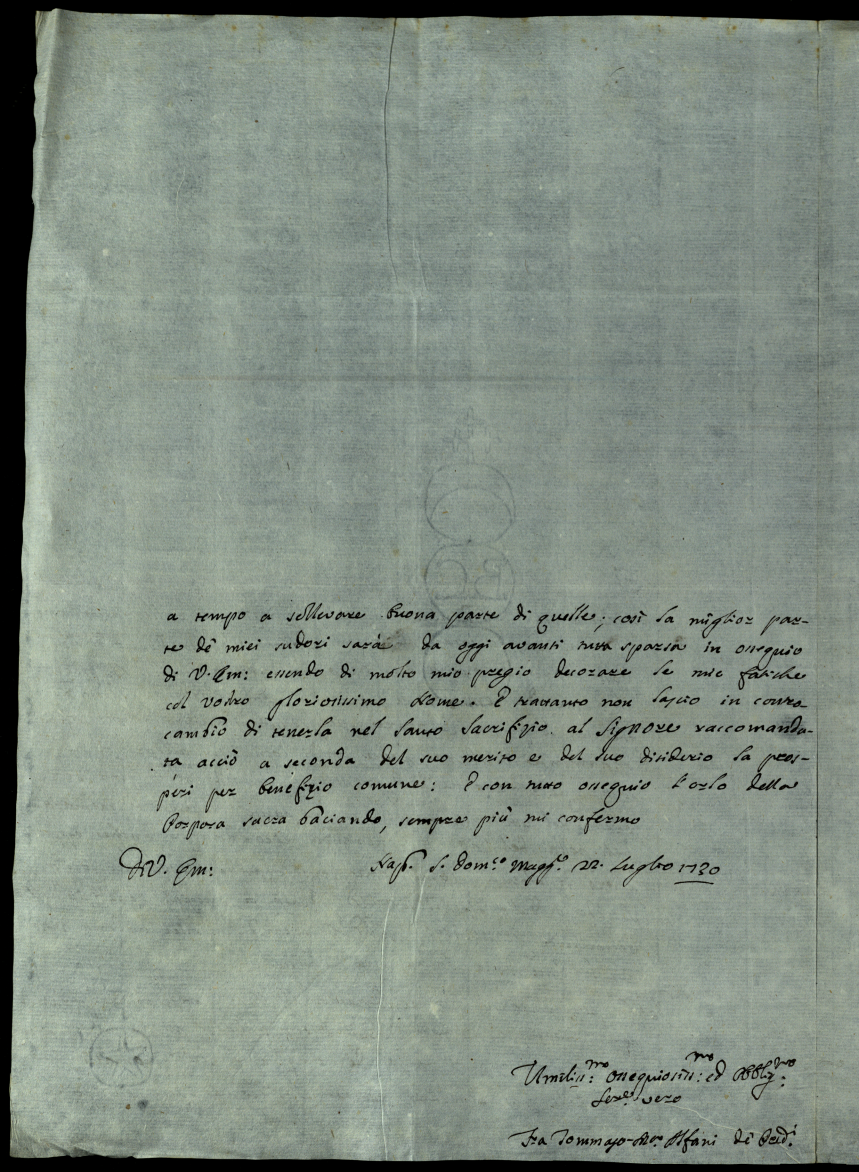 a tempo a sollevare buona parte di quelle; così la miglior par-
te dè miei sudori sarà da oggi avanti tutta sparsa in ossequio
di V. Em: essendo di molto mio pregio decorare le mie fatiche
col vostro gloriosissimo Nome. E trattanto non lascio in contra-
cambio di tenerla nel santo Sacrifizio al Signore raccomanda-
ta acciò a seconda del suo merito e del suo disiderio la pros-
peri per benefizio comune: E con tutto ossequio l'orlo della
Porpora sacra baciando, sempre più mi confermo
Di V. Em: Nap. S. Dom.co Magg.e 22. Luglio 1730
Umiliss:mo ossequiosiss:mo ed Obblig:mo
Ser.e vero
Fra Tommaso Alfani dè Pred.i